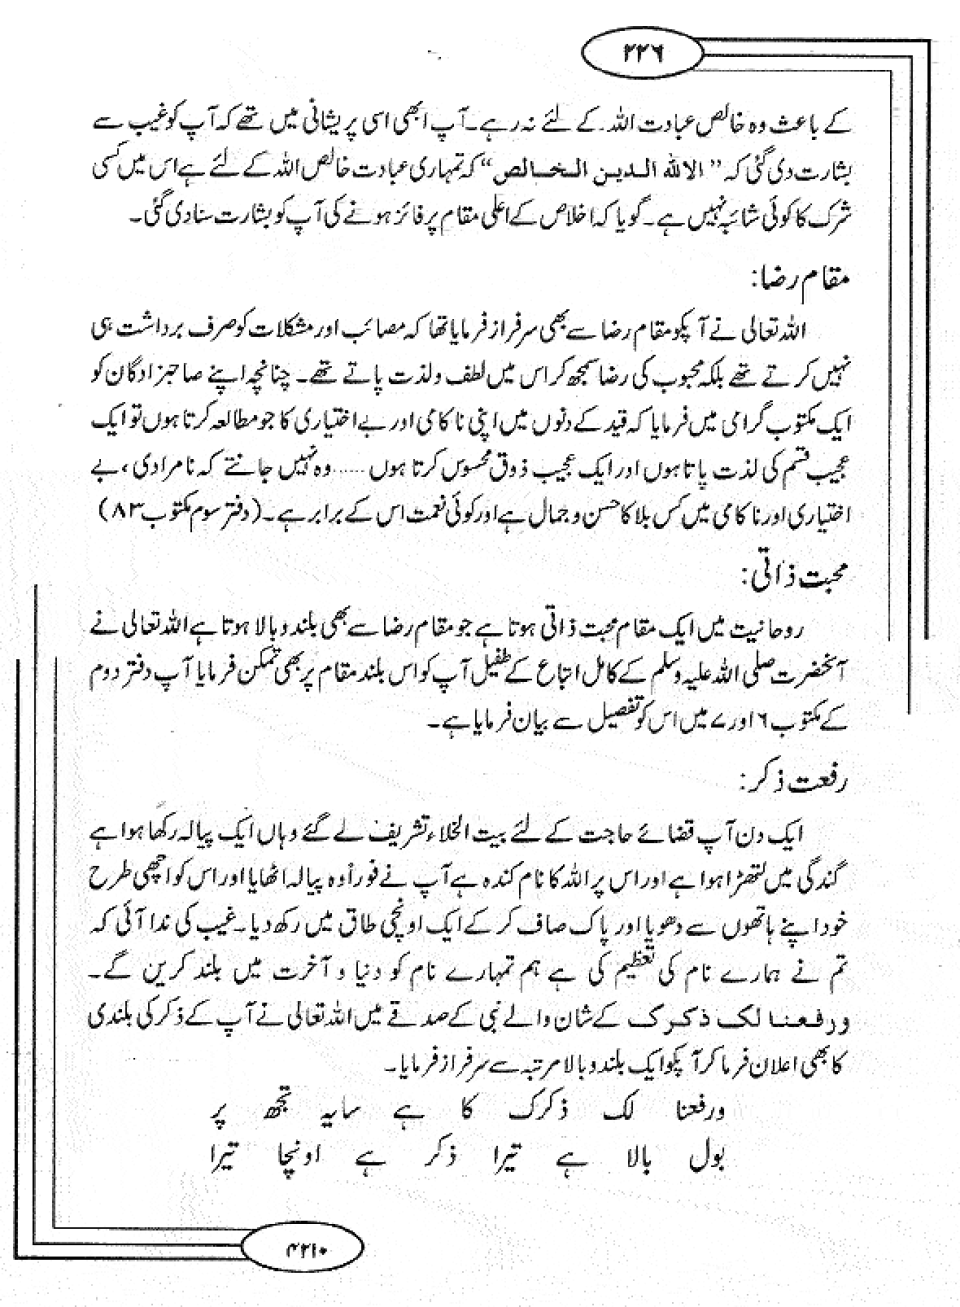 ۲۲۶
کے باعث وہ خالص عبادت اللہ کے لئے نہ رہے۔ آپ ابھی اسی پریشانی میں تھے کہ آپ کو غیب سے
بشارت دی گئی کہ ”الا للہ الدین الخالص“ کہ تمہاری عبادت خالص اللہ کے لئے ہے اس میں کسی
شرک کا کوئی شائبہ نہیں ہے۔ گویا کہ اخلاص کے اعلی مقام پر فائز ہونے کی آپ کو بشارت سنا دی گئی۔
مقام رضا:
اللہ تعالی نے آپکو مقام رضا سے بھی سرفراز فرمایا تھا کہ مصائب اور مشکلات کو صرف برداشت ہی
نہیں کرتے تھے بلکہ محبوب کی رضا سمجھ کر اس میں لطف ولذت پاتے تھے۔ چنانچہ اپنے صاحبزادگان کو
ایک مکتوب گرامی میں فرمایا کہ قید کے دنوں میں اپنی ناکامی اور بے اختیاری کا جو مطالعہ کرتا ہوں تو ایک
عجیب قسم کی لذت پاتا ہوں اور ایک عجیب ذوق محسوس کرتا ہوں ...... وہ نہیں جانتے کہ نامرادی، بے
اختیاری اور ناکامی میں کس بلا کا حسن و جمال ہے اور کوئی نعمت اس کے برابر ہے۔ (دفتر سوم مکتوب ۸۳)
محبت ذاتی:
روحانیت میں ایک مقام محبت ذاتی ہوتا ہے جو مقام رضا سے بھی بلند و بالا ہوتا ہے اللہ تعالی نے
آنحضرت صلی اللہ علیہ وسلم کے کامل اتباع کے طفیل آپ کو اس بلند مقام پر بھی متمکن فرمایا آپ دفتر دوم
کے مکتوب ۶ اور ۷ میں اس کو تفصیل سے بیان فرمایا ہے۔
رفعت ذکر:
ایک دن آپ قضائے حاجت کے لئے بیت الخلاء تشریف لے گئے وہاں ایک پیالہ رکھا ہوا ہے
گندگی میں لتھڑا ہوا ہے اور اس پر اللہ کا نام کندہ ہے آپ نے فوراً وہ پیالہ اٹھایا اور اس کو اچھی طرح
خود اپنے ہاتھوں سے دھویا اور پاک صاف کر کے ایک اونچی طاق میں رکھ دیا۔ غیب کی ندا آئی کہ
تم نے ہمارے نام کی تعظیم کی ہے ہم تمہارے نام کو دنیا و آخرت میں بلند کریں گے۔
ورفعنا لک ذکرک کے شان والے نبی کے صدقے میں اللہ تعالی نے آپ کے ذکر کی بلندی
کا بھی اعلان فرما کر آپکو ایک بلند و بالا مرتبہ سے سرفراز فرمایا۔
ورفعنا لک ذکرک کا ہے سایہ تجھ پر
بول بالا ہے تیرا ذکر ہے اونچا تیرا